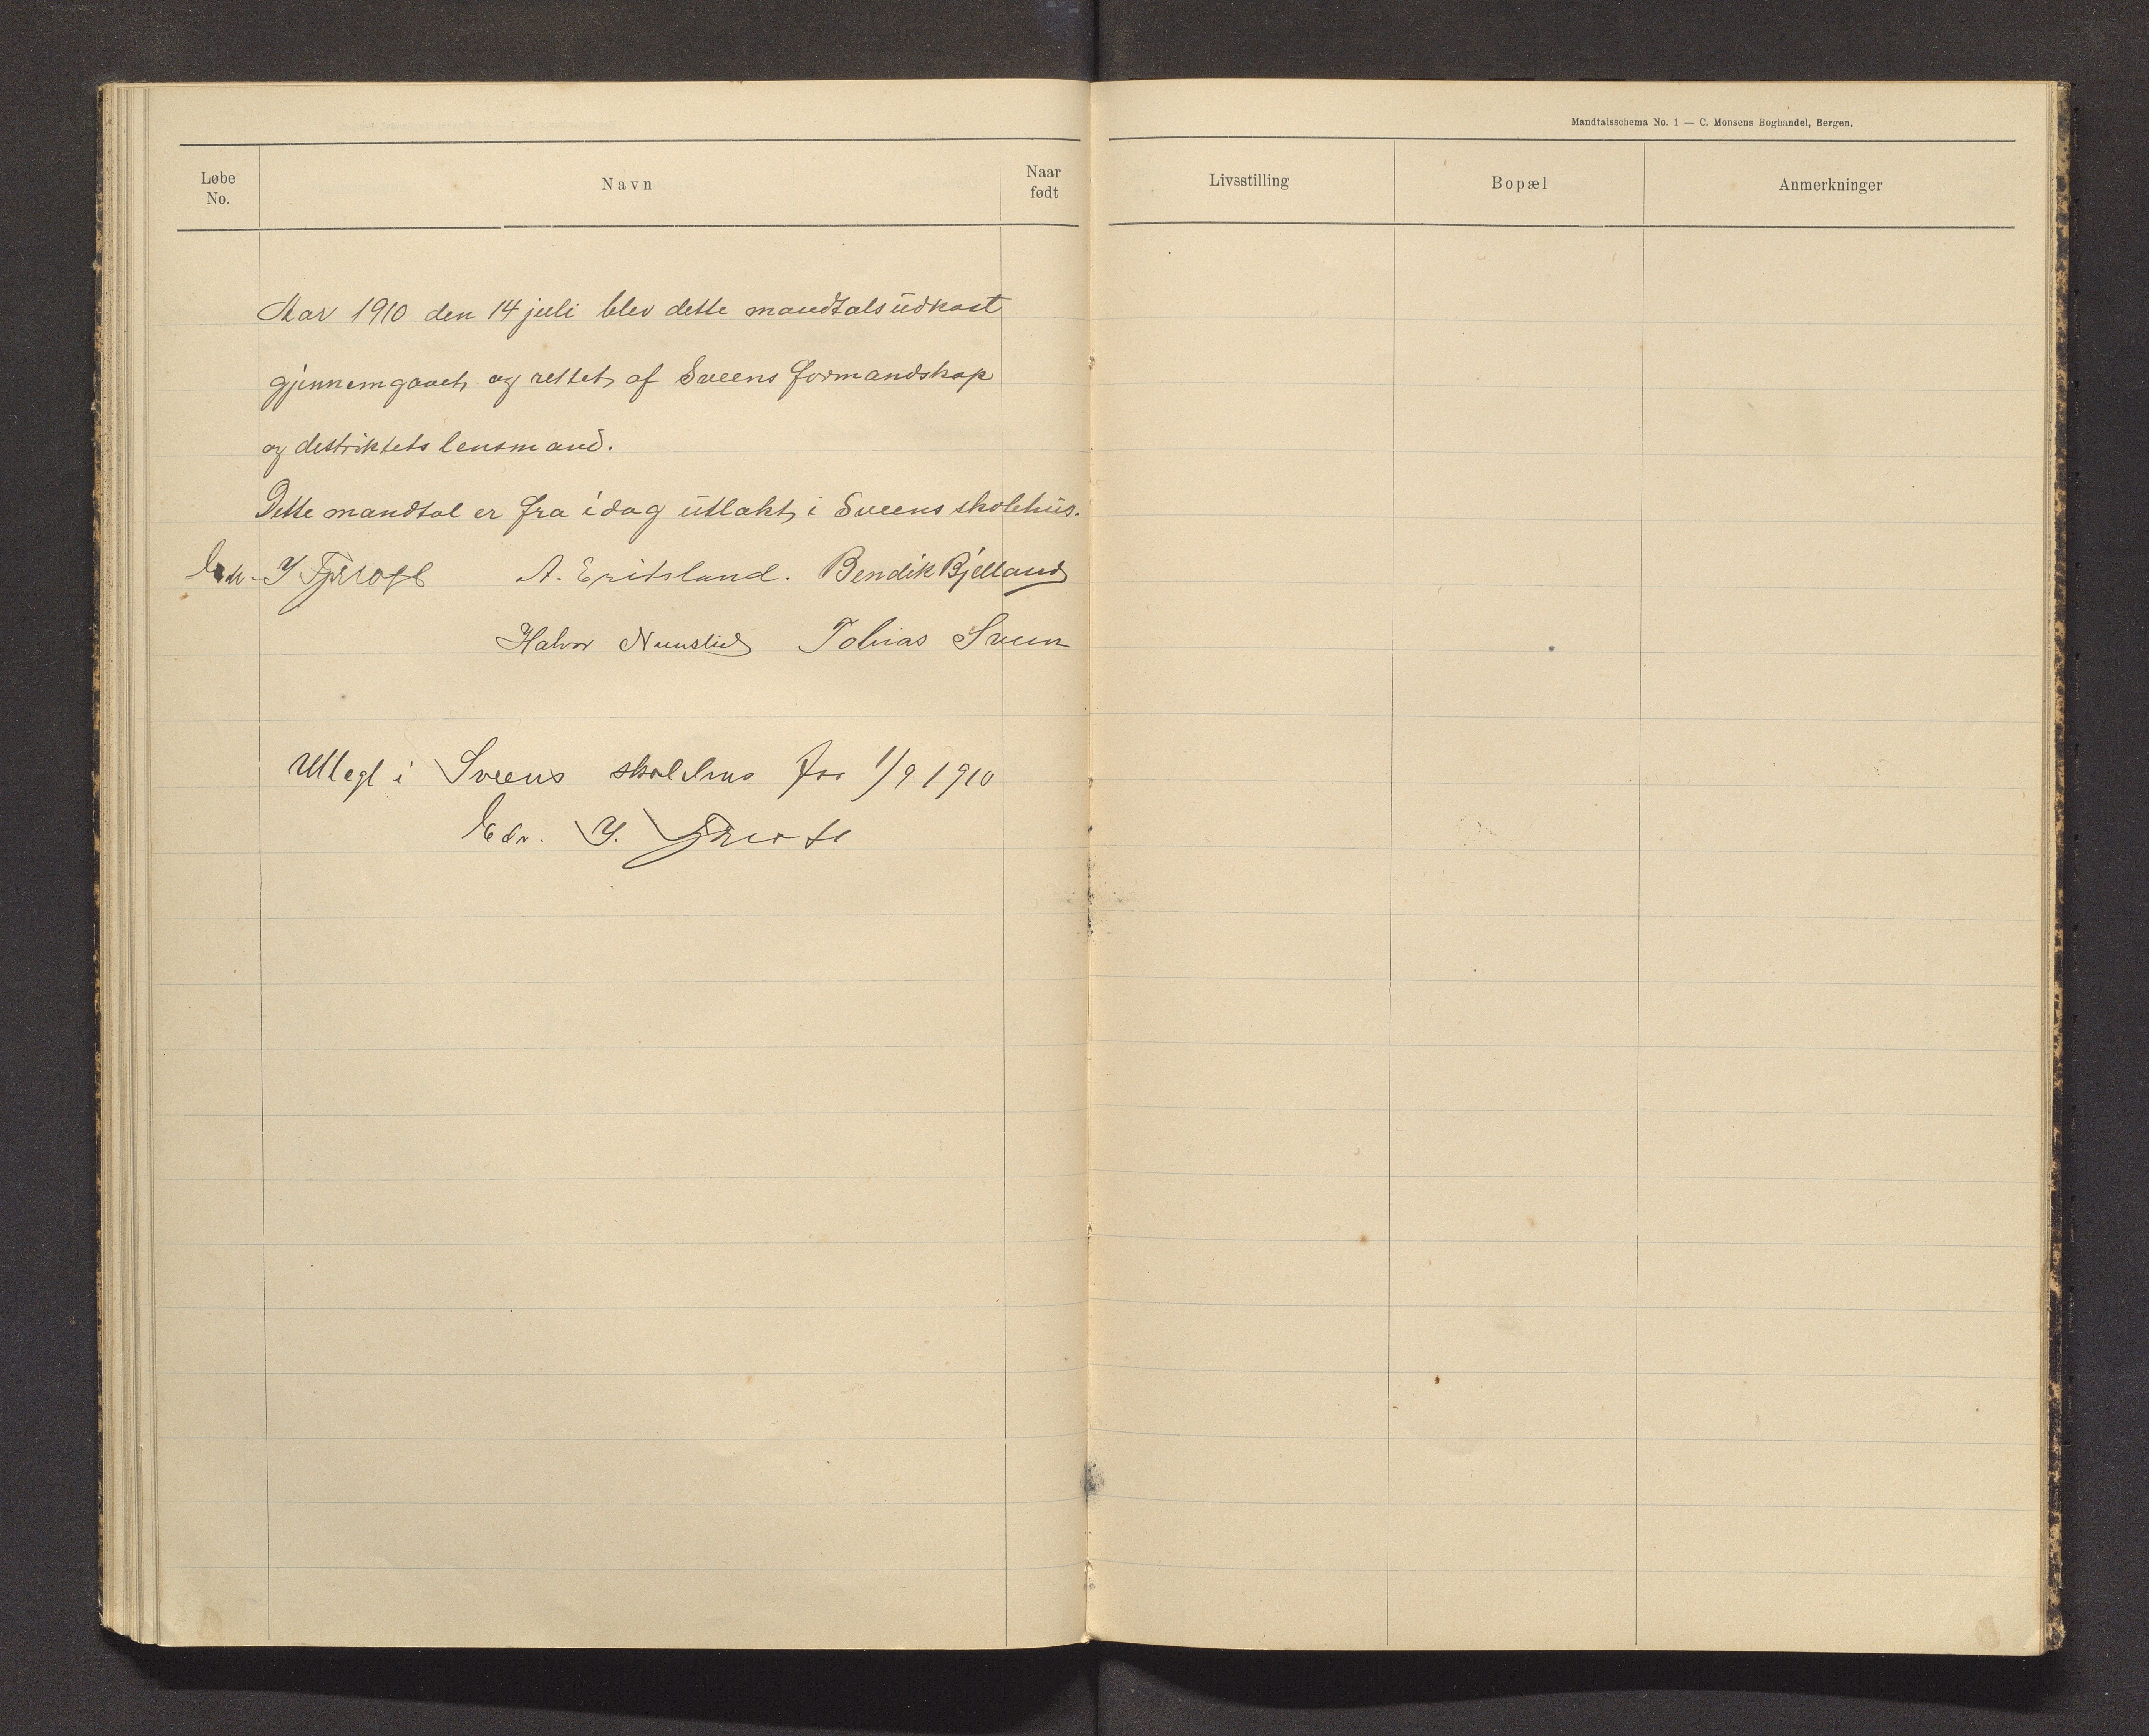 Mandtalsschema No. 1 — C. Monsens Boghandel, Bergen.
Løbe No.
Navn
Naar født
Livsstilling
Bopæl
Anmerkninger
Aar 1910 den 14 juli blev dette mandtalsudkast
gjennemgaaet og rettet af Sveens formandskap
og destriktets lensmand.
Dette mandtal er fra idag utlakt i Sveens skolehus.
A. Eritsland. Bendik Bjelland
Halvor Tobias Sveen
Utlegt i Sveens skolehus fra 1/9 1910
Edv. Y.